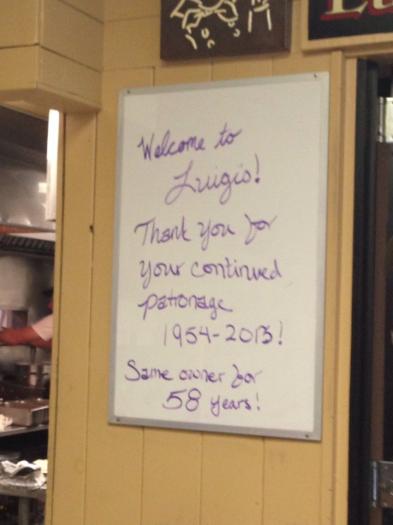 Welcome to
Luigis!
Thank you for
your continued
patronage
1954-2013!
Same owner for
58 years!